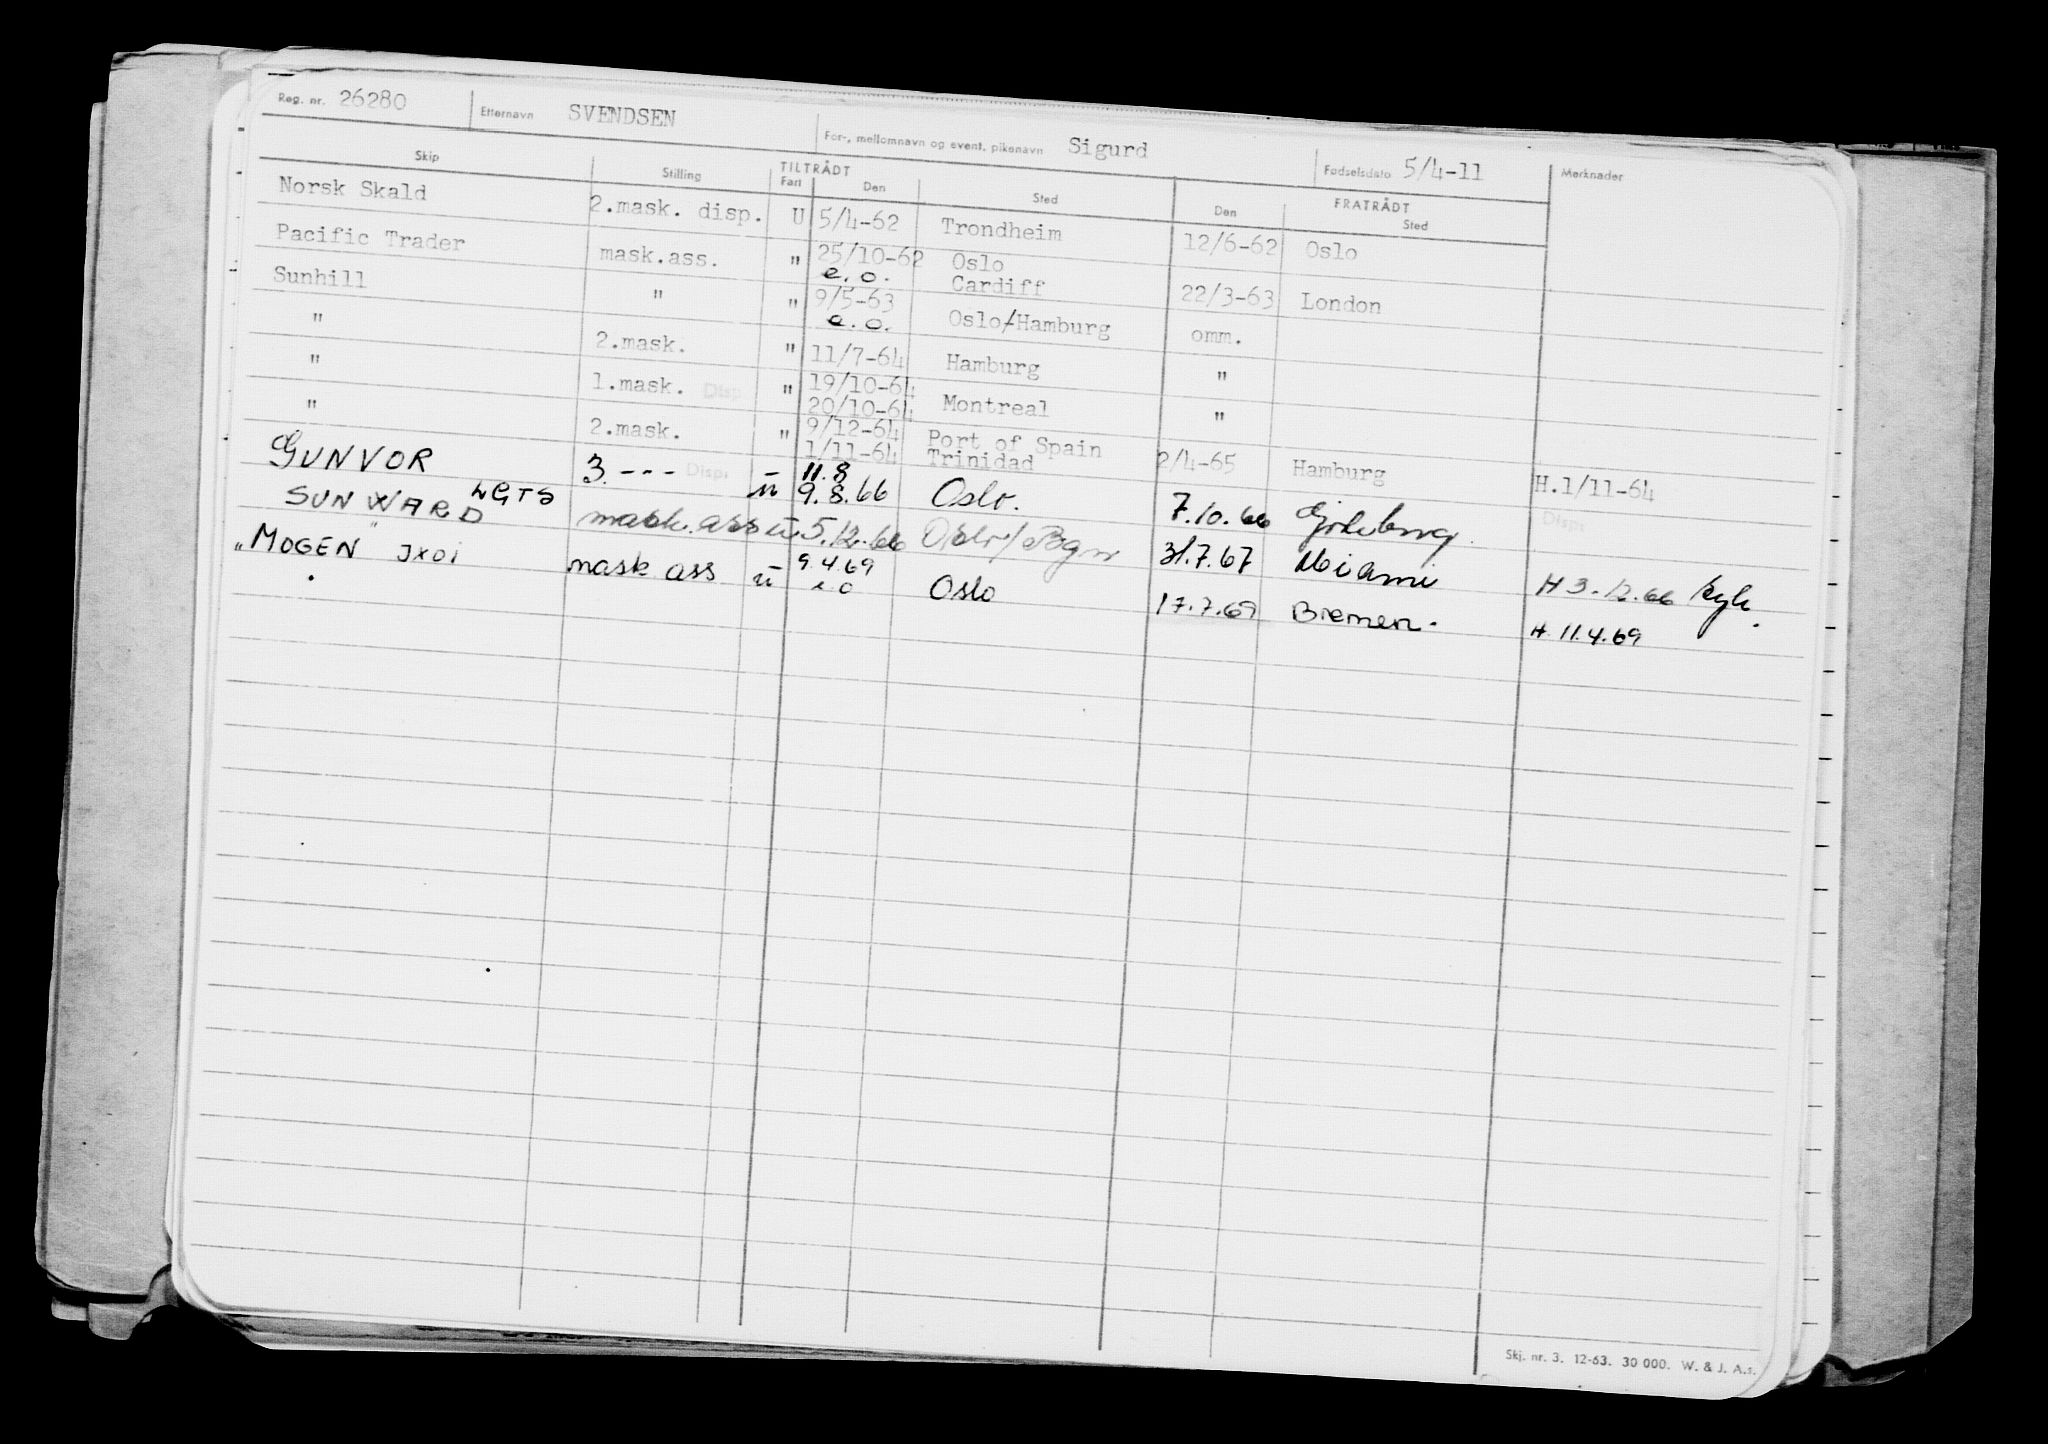 Reg. nr. 26280 Etternavn SVENDSEN For-, mellomnavn og event. pikenavn Sigurd Fødselsdato 5/4-11 Merknader
Skip Stilling TILTRÅDT Fart Den Sted FRATRÅDT Den Sted
Norsk Skald 2.mask. disp. U 5/4-62 Trondheim 12/6-62 Oslo
Pacific Trader mask.ass. " 25/10-62 Oslo
e.o. Cardiff 22/3-63 London
Sunhill " " 9/5-63 Oslo/Hamburg omm.
e.o.
" 2.mask. " 11/7-64 Hamburg "
" 1.mask. Disp " 19/10-64 Montreal "
20/10-64
" 2.mask. " 9/12-64 Port of Spain 2/4-65 Hamburg H.1/11-64
1/11-64 Trinidad
GUNVOR 3. --- Disp. u 11.8 Oslo. 7.10.66 Gjøteborg. Disp.
9.8.66
SUNWARD LGTS mask.ass u 5.12.66 Oslo/Bgn 31.7.67 Miami H 3.12.66
"MOGEN" JXOI mask ass u 9.4.69 Oslo 17.7.69 Bremen. H. 11.4.69
e o
Skj. nr. 3. 12-63. 30 000. W. & J. A.s.